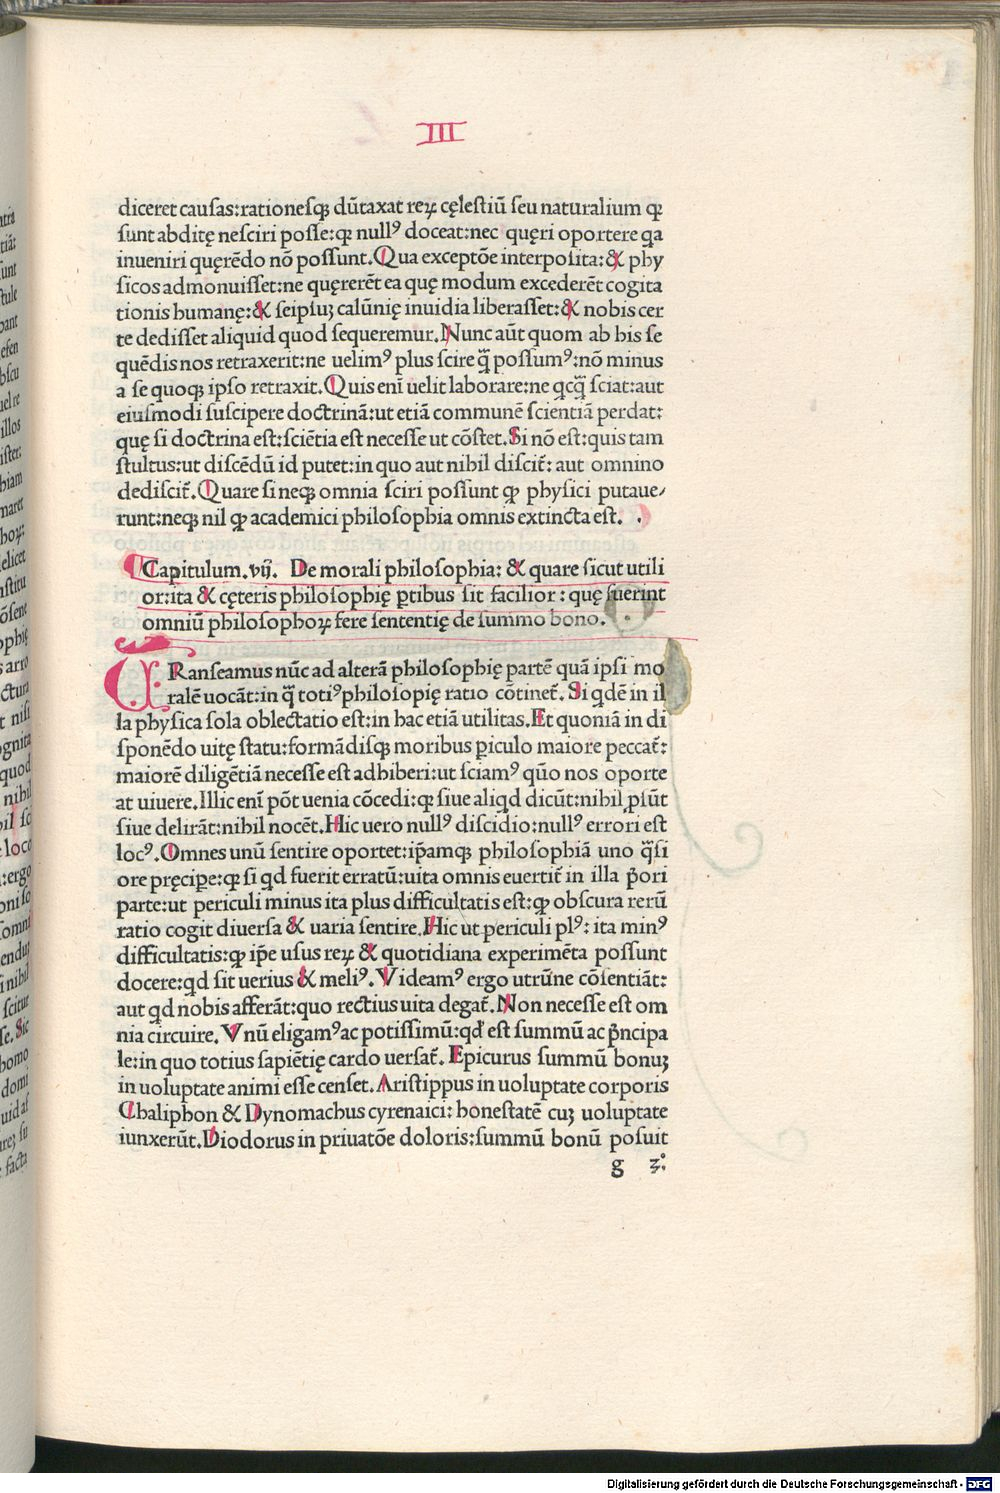 III
diceret causas:rationesqꝫ dūtaxat reꝝ cęlestiū seu naturalium qꝛ
sunt abditę nesciri posse:qꝛ null⁹ doceat:nec quęri oportere qa
inueniri quęrēdo nō possunt.Qua exceptōe interposita:& phy
sicos admonuisset:ne quęrerēt ea quę modum excederēt cogita
tionis humanę:& seipsuꝫ calūnię inuidia liberasset:& nobis cer
te dedisset aliquid quod sequeremur.Nunc aūt quom ab his se
quēdis nos retraxerit:ne uelim⁹ plus scire q̄̄ possum⁹:nō minus
a se quoqꝫ ipso retraxit.Quis eni uelit laborare:ne qcq̄̄ sciat:aut
eiusmodi suscipere doctrinā:ut etiā communē scientiā perdat:
quę si doctrina est:sciētia est necesse ut cōstet.Si nō est:quis tam
stultus:ut discēdū id putet:in quo aut nihil discit̄: aut omnino
dediscit̄.Quare si neqꝫ omnia sciri possunt qꝛ physici putaue⸗
runt:neqꝫ nil qꝛ academici philosophia omnis extincta est. .
Capitulum.vij. De morali philosophia: & quare sicut utili
or:ita & cęteris philosophię ꝑtibus sit facilior : quę fuerint
omniū philosophoꝝ fere sententię de summo bono.
TRanseamus nūc ad alterā philosophię partē quā ipsi mo
ralē uocāt:in q̄̄ toti⁹philosopię ratio cōtinet̄. Si qdē in il
la physica sola oblectatio est:in hac etiā utilitas.Et quoniā in di
sponēdo uitę statu:formādisqꝫ moribus ꝑiculo maiore peccat̄:
maiorē diligētiā necesse est adhiberi:ut sciam⁹ quō nos oporte
at uiuere.Illic eni pōt uenia cōcedi:qꝛ siue aliqd dicūt:nihil ꝓsūt
siue delirāt:nihil nocēt.Hic uero null⁹ discidio:null⁹ errori est
loc⁹.Omnes unū sentire oportet:ip̄amqꝫ philosophiā uno q̄̄si
ore pręcipe:qꝛ si qd fuerit erratū:uita omnis euertit̄ in illa p̄ori
parte:ut periculi minus ita plus difficultatis est:qꝛ obscura rerū
ratio cogit diuersa & uaria sentire.Hic ut periculi pl⁹: ita min⁹
difficultatis:qꝛ ip̄e usus reꝝ & quotidiana experimēta possunt
docere:qd sit uerius & meli⁹.Videam⁹ ergo utrūne cōsentiāt:
aut qd nobis afferāt:quo rectius uita degat̄.Non necesse est om
nia circuire.Vnū eligam⁹ac potissimū:qd̄ est summū ac p̄ncipa
le:in quo totius sapiētię cardo uersat̄. Epicurus summū bonuꝫ
in uoluptate animi esse censet.Aristippus in uoluptate corporis
Chaliphon & Dynomachus cyrenaici: honestatē cuꝫ uoluptate
iunxerūt.Diodorus in priuatōe doloris:summū bonū posuit
g ꝫ:
Digitalisierung gefördert durch die Deutsche Forschungsgemeinschaft - DFG